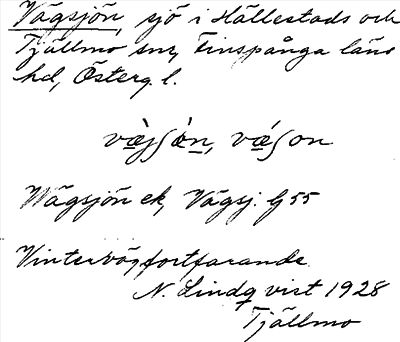 Vägsjön, sjö i Hällestads och
Tjällmo snr, Finspånga läns
hd, Österg. l.
væ̀jʃòn, vǽʃon
Wägsjön ek, Vägsj. G 55
Vinterväg fortfarande
N. Lindqvist 1928
Tjällmo